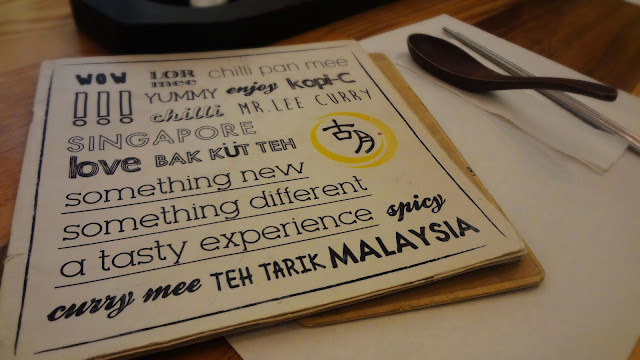 WOW LOR mee chilli pan mee
!!! YUMMY enjoy kopi-C
chilli MR.LEE CURRY
SINGAPORE
love BAK KÜT TEH
古月
something new
something different
a tasty experience spicy
curry mee TEH TARIK MALAYSIA